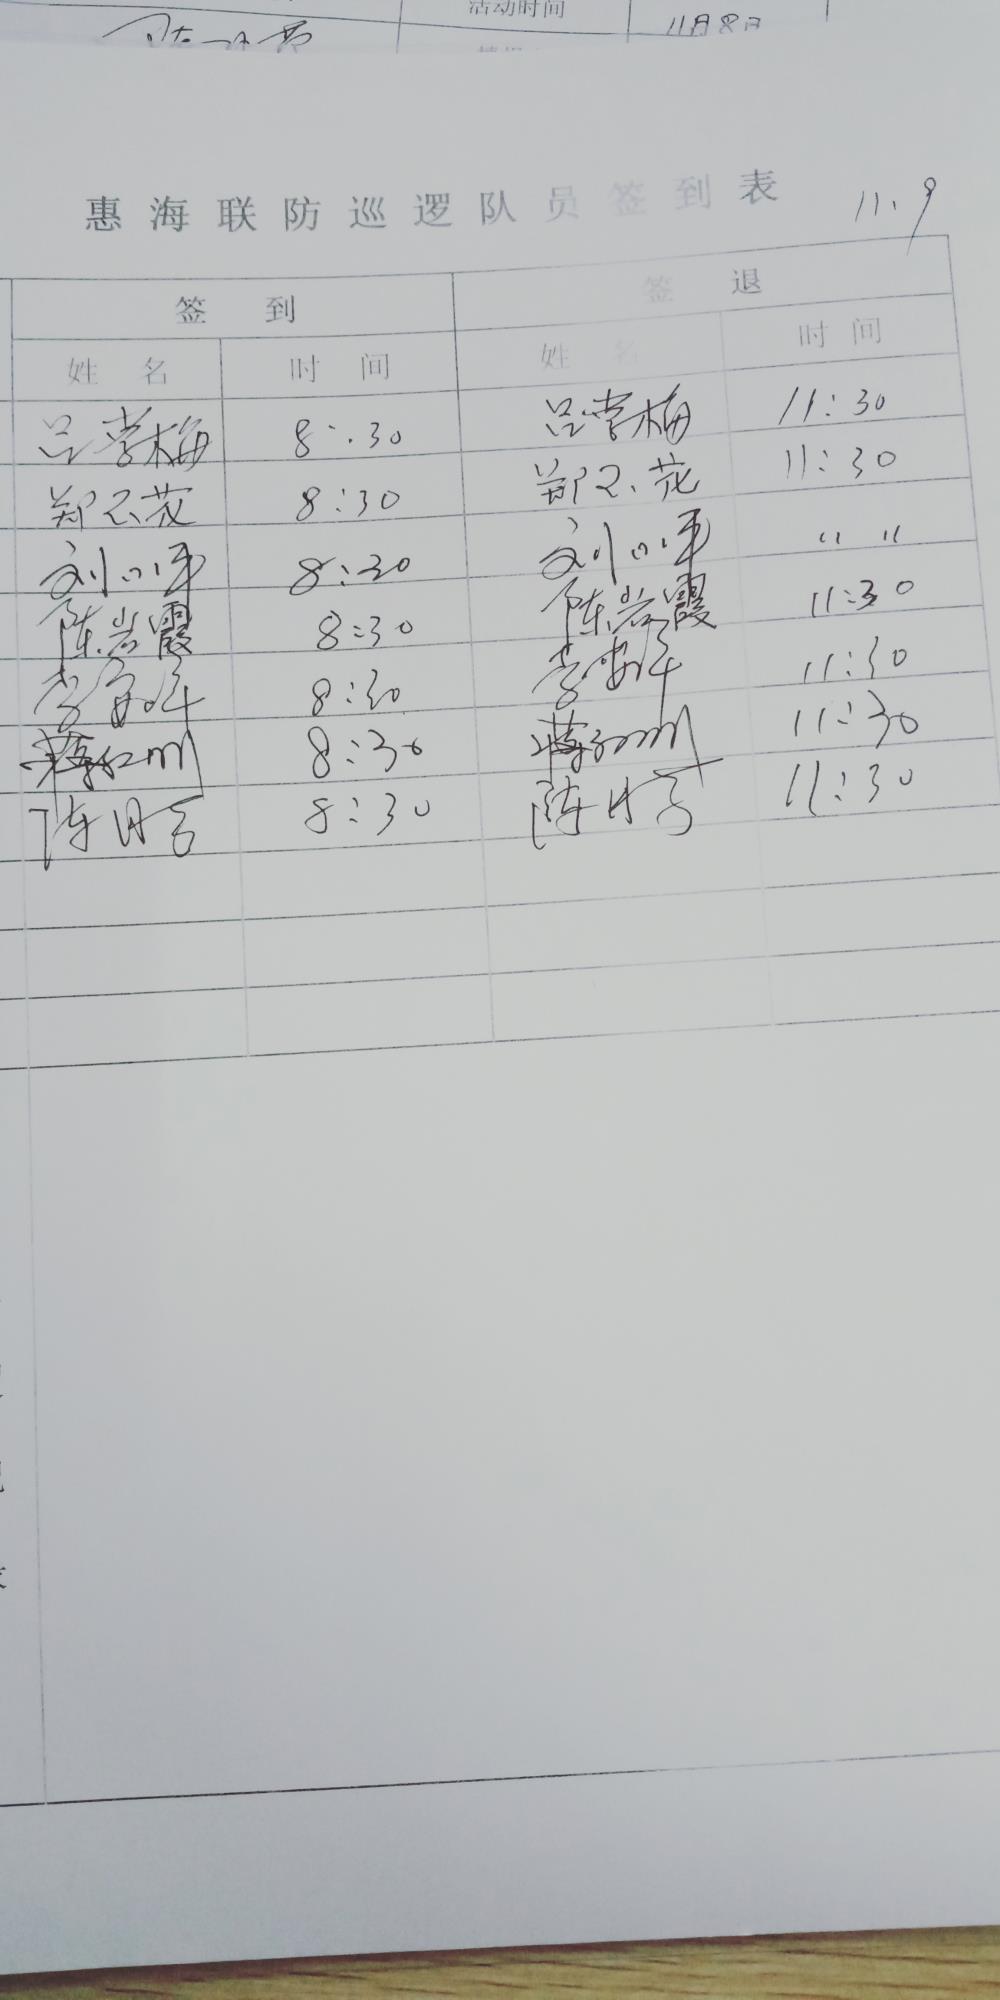 活动时间 11月8日
惠海联防巡逻队员签到表 11.9
签到 签退
姓名 时间 姓名 时间
吕学梅 8:30 吕学梅 11:30
郑不花 8:30 郑不花 11:30
刘小平 8:30 刘小平 〃 〃
陈岩霞 8:30 陈岩霞 11:30
李 8:30 李 11:30
蒋红 8:30 蒋红 11:30
陈月 8:30 陈月 11:30